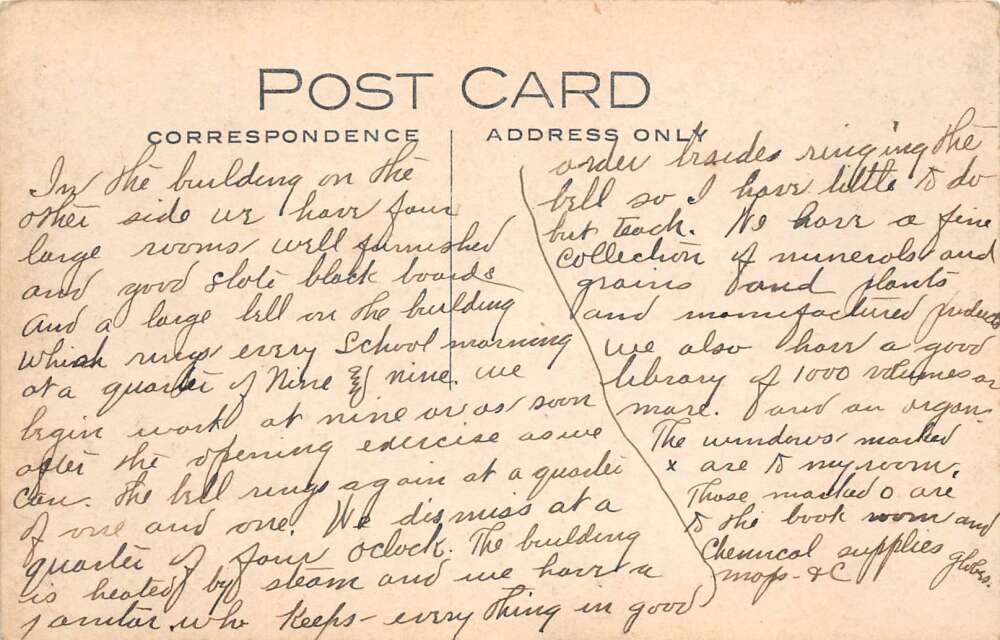 POST CARD
CORRESPONDENCE
ADDRESS ONLY
In the building on the
other side we have four
large rooms well furnished
and good slate black boards
and a large bell on the building
which rings every School morning
at a quarter of Nine & nine. we
begin work at nine or as soon
after the opening exercise as we
can. The bell rings again at a quarter
of one and one. We dismiss at a
quarter of four oclock. The building
is heated by steam and we have a
janitor who keeps every thing in good
order besides ringing the
bell so I have little to do
but teach. We have a fine
collection of minerals and
grains and plants
and manufactured products
we also have a good
library of 1000 volumes or
more. and an organ.
The windows marked
x are to my room.
Those marked o are
to the book room and
Chemical supplies globes.
maps - &C